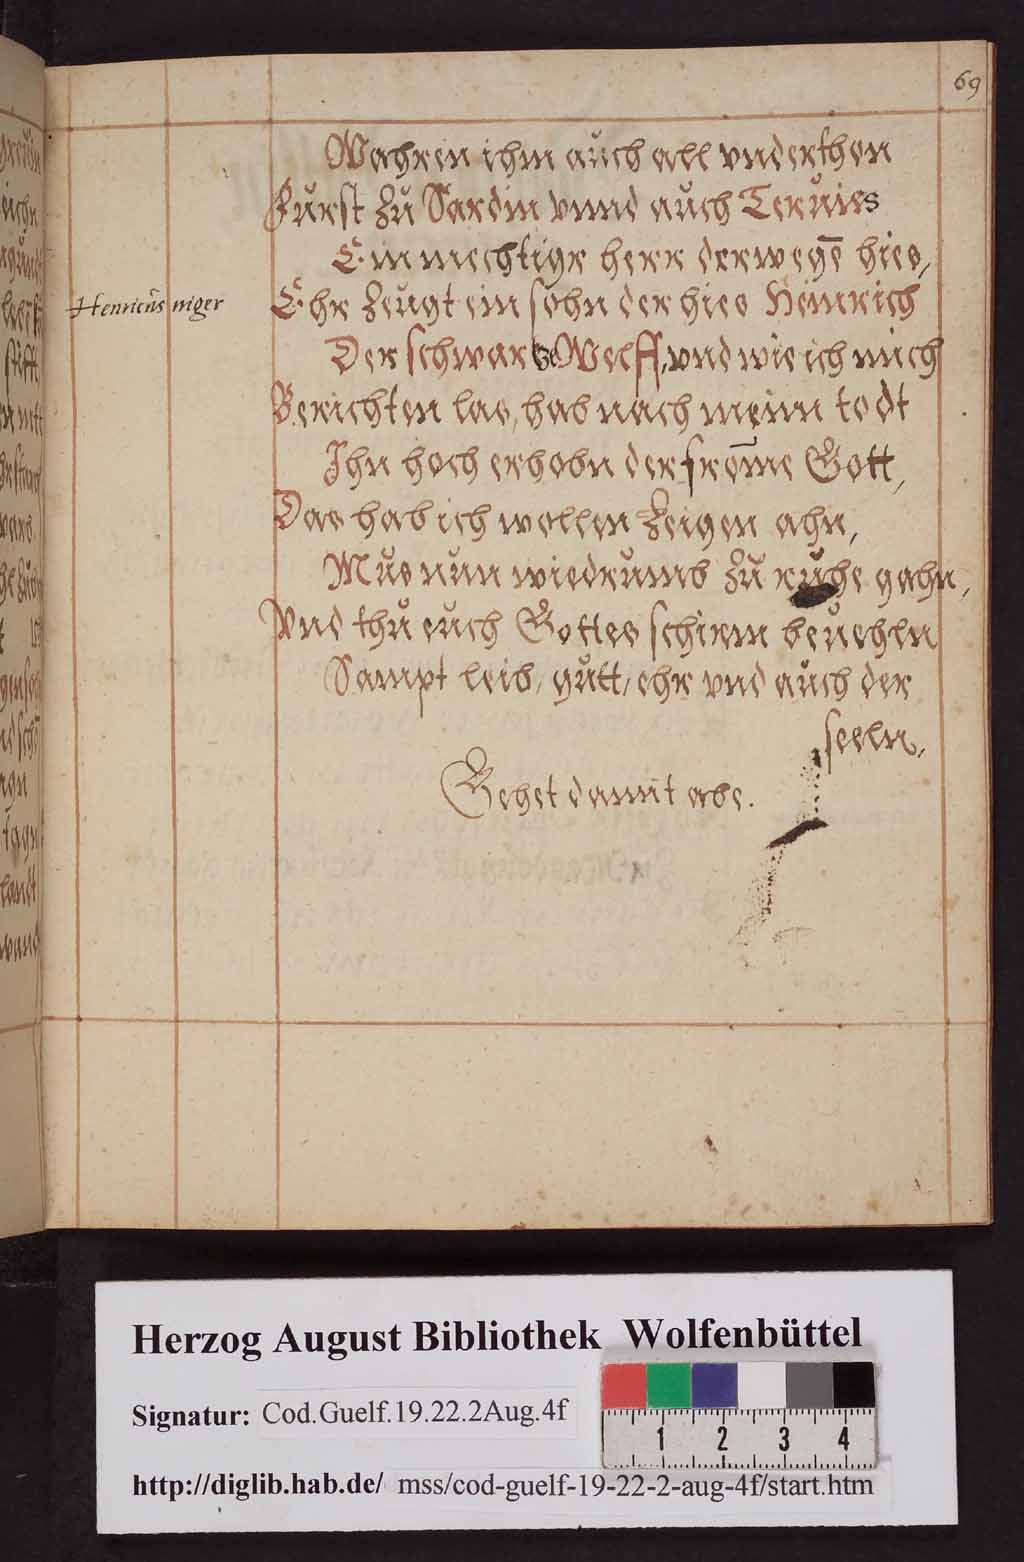 69
Wahren ihm auch all vnderthon
Furst zu Sardin vnnd auch Teruies
Ein mechtigr herr derwegē hies,
Henricus niger
Ehr zeugt ein sohn der hies Heinrich
Der schwartze Welff, vnd wie ich mich
Berichten las, hab nach meinn todt
Ihn hoch erhobn der frōme Gott,
Das hab ich wollen zeigen ahn,
Mus nun wiedrumb zu ruhe gahn,
Vnd thu euch Gottes schirm beuehln
Sampt leib, gutt, ehr vnd auch der
seeln,
Gehet damit abe.
Herzog August Bibliothek Wolfenbüttel
Signatur: Cod.Guelf.19.22.2Aug.4f
1 2 3 4
http://diglib.hab.de/ mss/cod-guelf-19-22-2-aug-4f/start.htm